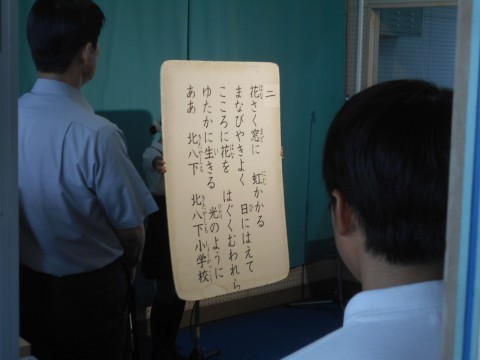 二
花さく窓に 虹かかる
まなびやきよく 日にはえて
こころに花を はぐくむわれら
ゆたかに生きる 光のように
ああ 北八下 北八下小学校